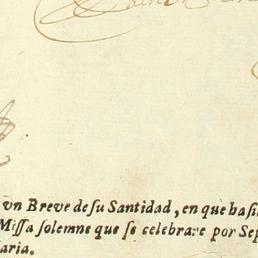 vn Breve de su Santidad, en que ha si
Missa solemne que se celebrare por Sep
aria.